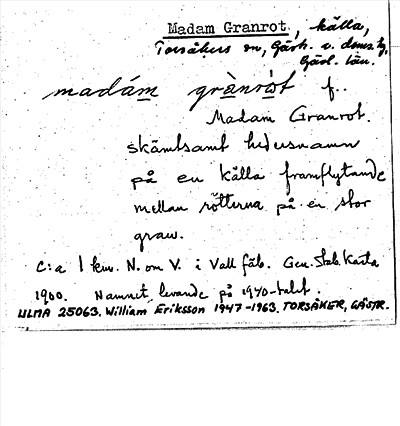 Madam Granrot, källa,
Torsåkers sn, Gästr. v. doms. tg,
Gävl. län.
madám grànròt f..
Madam Granrot.
skämtsamt hedersnamn
på en källa framflytande
mellan rötterna på en stor
gran.
C:a 1 km. N. om V. i Vall fäb. Gen. Stab. Karta
1900. Namnet levande på 1940-talet.
ULMA 25063. William Eriksson 1947-1963. TORSÅKER, GÄSTR.